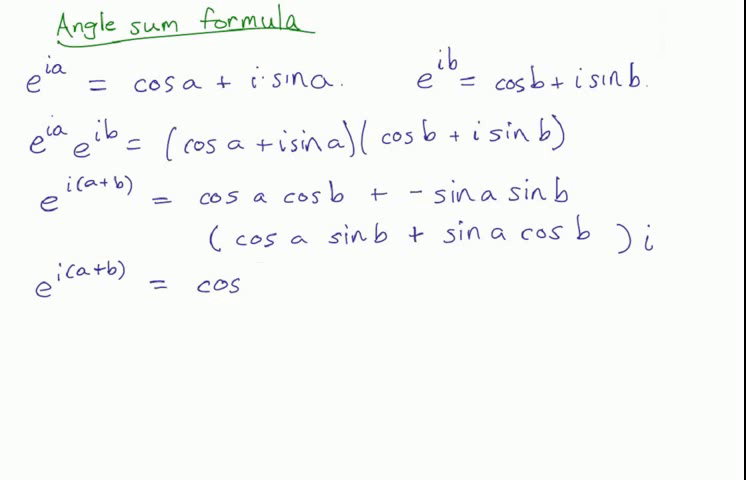 Angle sum formula
e^{ia} = cos a + i·sin a. e^{ib} = cos b + i sin b.
e^{ia} e^{ib} = (cos a + i sin a)(cos b + i sin b)
e^{i(a+b)} = cos a cos b + - sin a sin b
(cos a sin b + sin a cos b) i
e^{i(a+b)} = cos